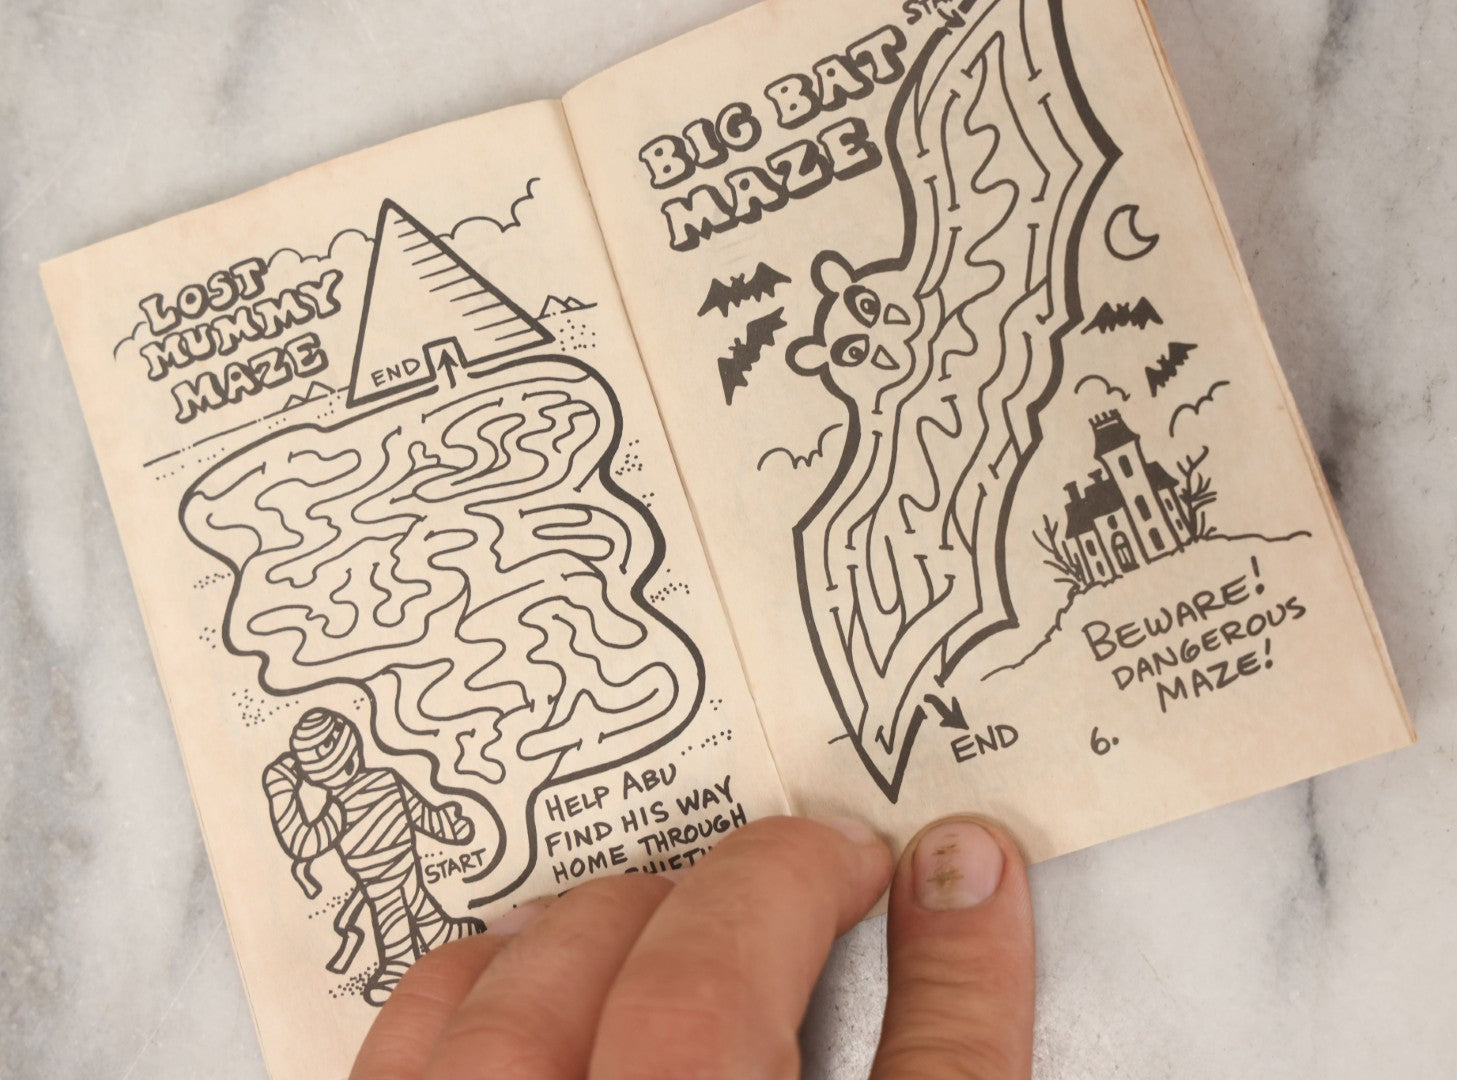 LOST
MUMMY
MAZE
END
START
HELP ABU
FIND HIS WAY
HOME THROUGH
BIG BAT
MAZE
END
BEWARE!
DANGEROUS
MAZE!
6.